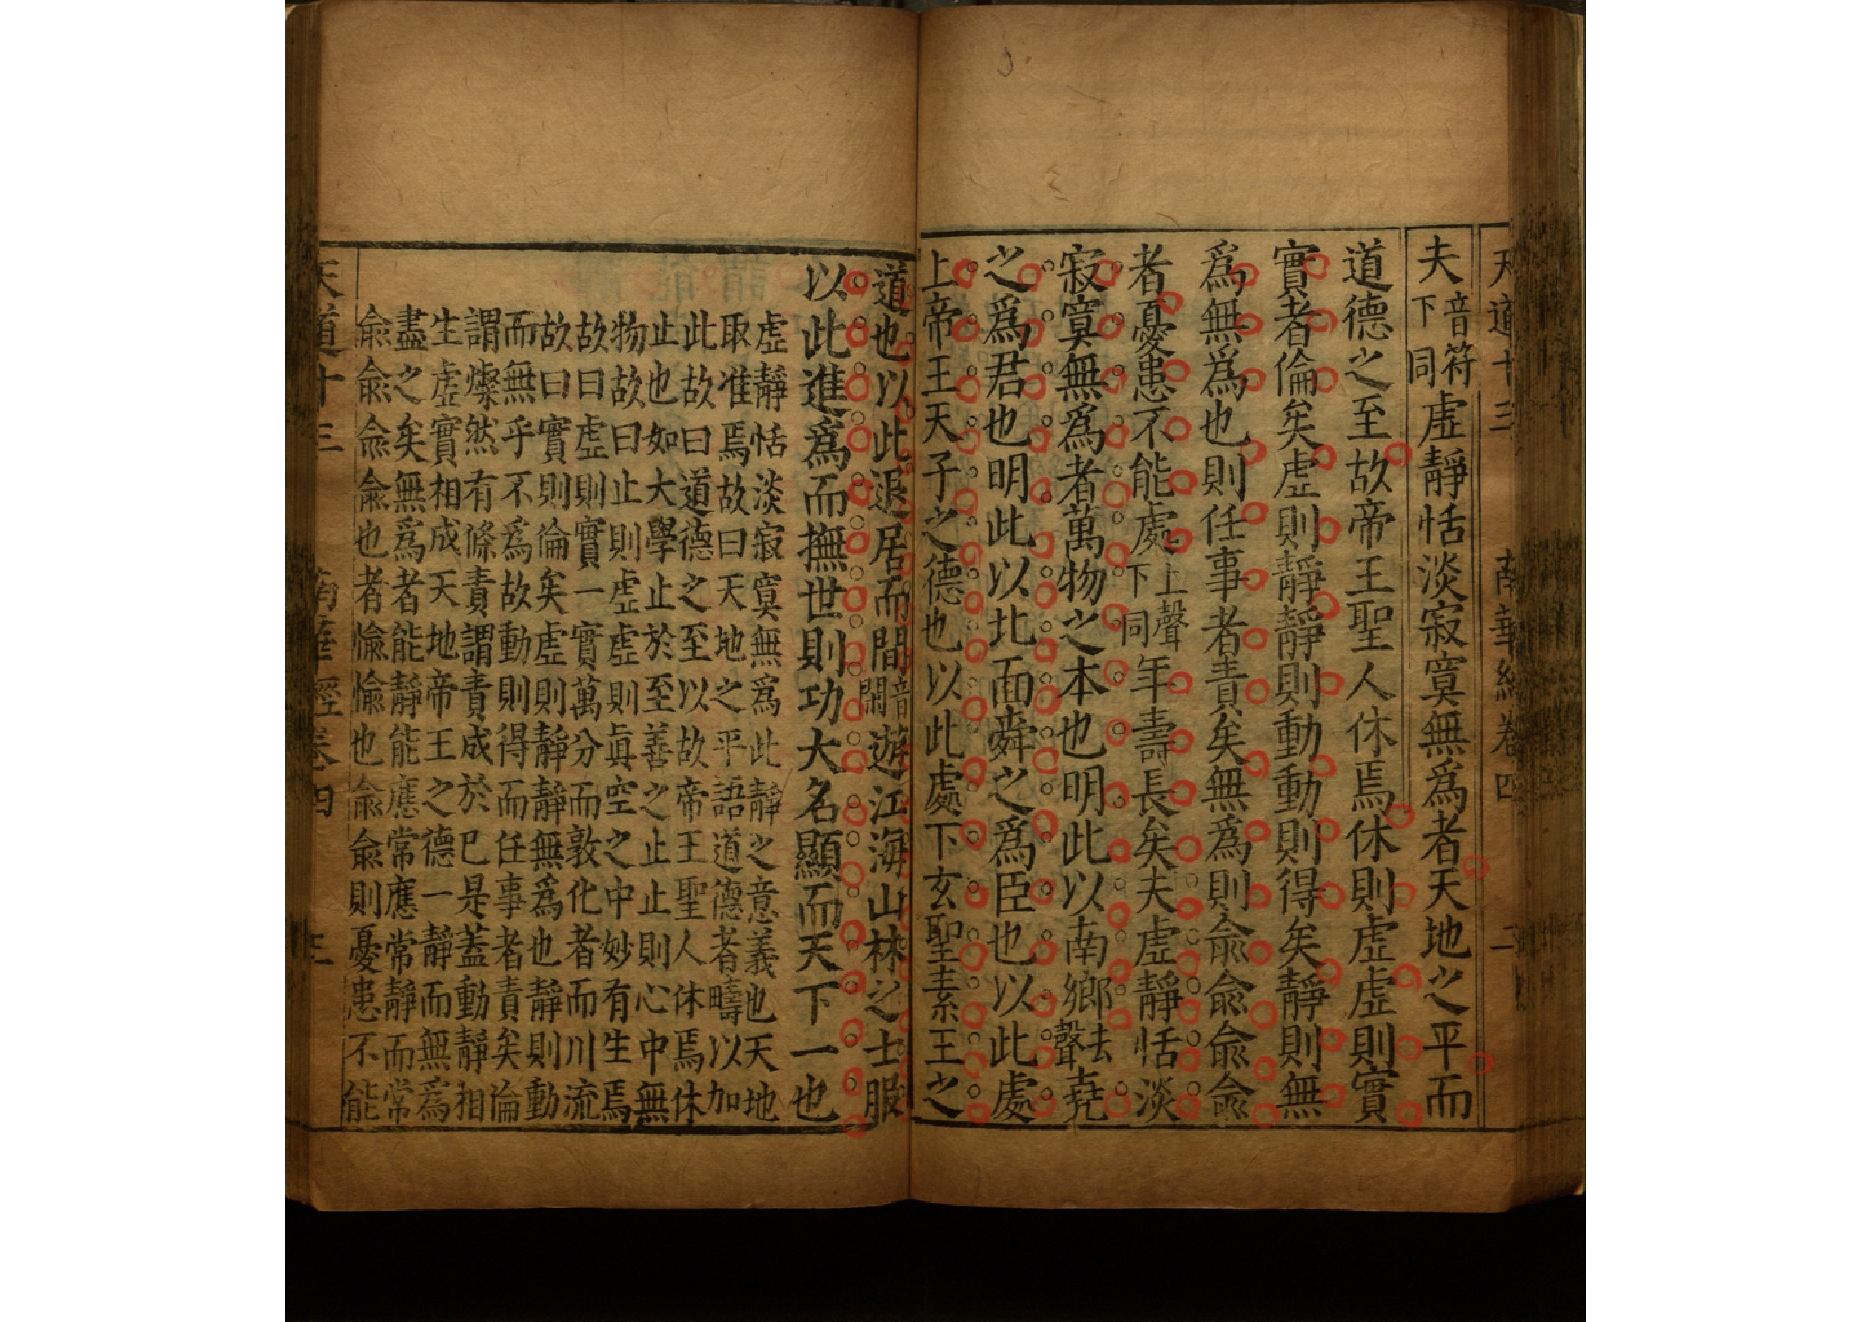 天道十三 南華經卷四 二
夫音符下同虛靜恬淡寂寞無爲者天地之平而
道德之至故帝王聖人休焉休則虛虛則實
實者倫矣虛則靜靜則動動則得矣靜則無
爲無爲也則任事者責矣無爲則俞俞俞俞
者憂患不能處上聲下同年壽長矣夫虛靜恬淡
寂寞無爲者萬物之本也明此以南鄉去聲堯
之爲君也明此以北面舜之爲臣也以此處
上帝王天子之德也以此處下玄聖素王之
道也以此退居而間音閑遊江海山林之士服
以此進爲而撫世則功大名顯而天下一也
虛靜恬淡寂寞無爲此靜之意義也天地
取准焉故曰天地之平語道德者疇以加
此故曰道德之至以故帝王聖人休焉休
止也如大學止於至善之止止則心中無
物故曰止則虛虛則眞空之中妙有生焉
故曰虛則實一實萬分而敦化者而川流
故曰實則倫矣虛則靜靜無爲也靜則動
而無乎不爲故動則得而任事者責矣倫
謂燦然有條責謂責成於已是蓋動靜相
生虛實相成天地帝王之德一靜而無爲
盡之矣無爲者能靜能應常應常靜而常
俞俞俞俞也者愉愉也俞俞則憂患不能
天道十三 南華經卷四 二